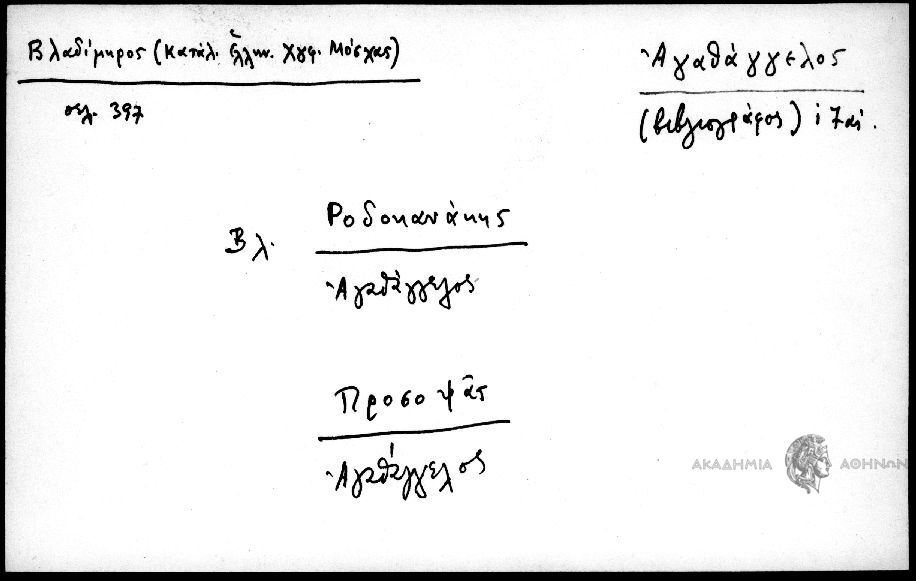 Βλαδίμηρος (Κατάλ. Ἑλλην. Χγφ. Μόσχας)
σελ. 397
Ἀγαθάγγελος
(βιβλιογράφος) ιζ αἰ.
Βλ. Ροδοκανάκης
Ἀγαθάγγελος
Προσοψᾶς
Ἀγαθάγγελος
ΑΚΑΔΗΜΙΑ ΑΘΗΝΩΝ